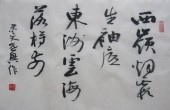 西岭烟霞
生袖底
東洲雲海
落樽前